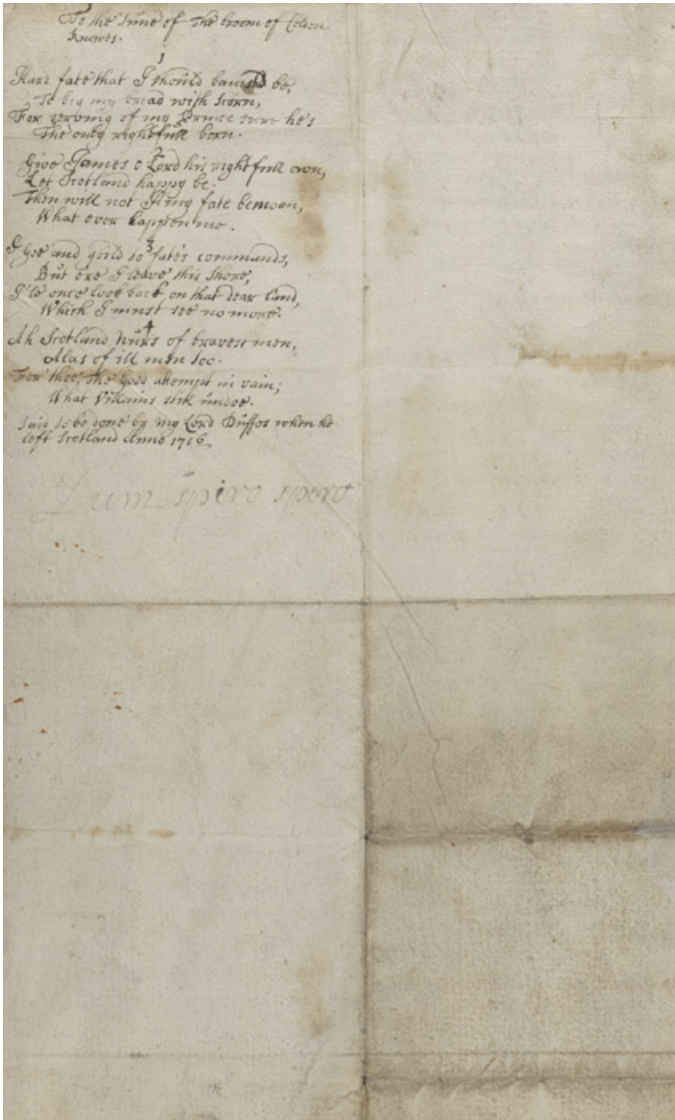 To the tune of The broom of Colden
knows.
1
Hard fate that I should banish'd be,
To beg my bread with scorn,
For serving of my Prince sure he's
The only rightfull born.
2
Give James o Lord his rightfull own,
Let Scotland happy be.
Then will not I my fate bemoan,
What ever happen me.
3
I goe and yeild to fate's commands,
But ere I leave this shore,
I'le once look back on that dear land,
Which I must see no more.
4
Ah Scotland nurs of bravest men,
Alas of ill men too.
For thee, the Good attempt in vain;
What Villains still undoe.
Said to be done by my Lord Duffos when he
left Scotland Anno 1716
Dum spiro spero